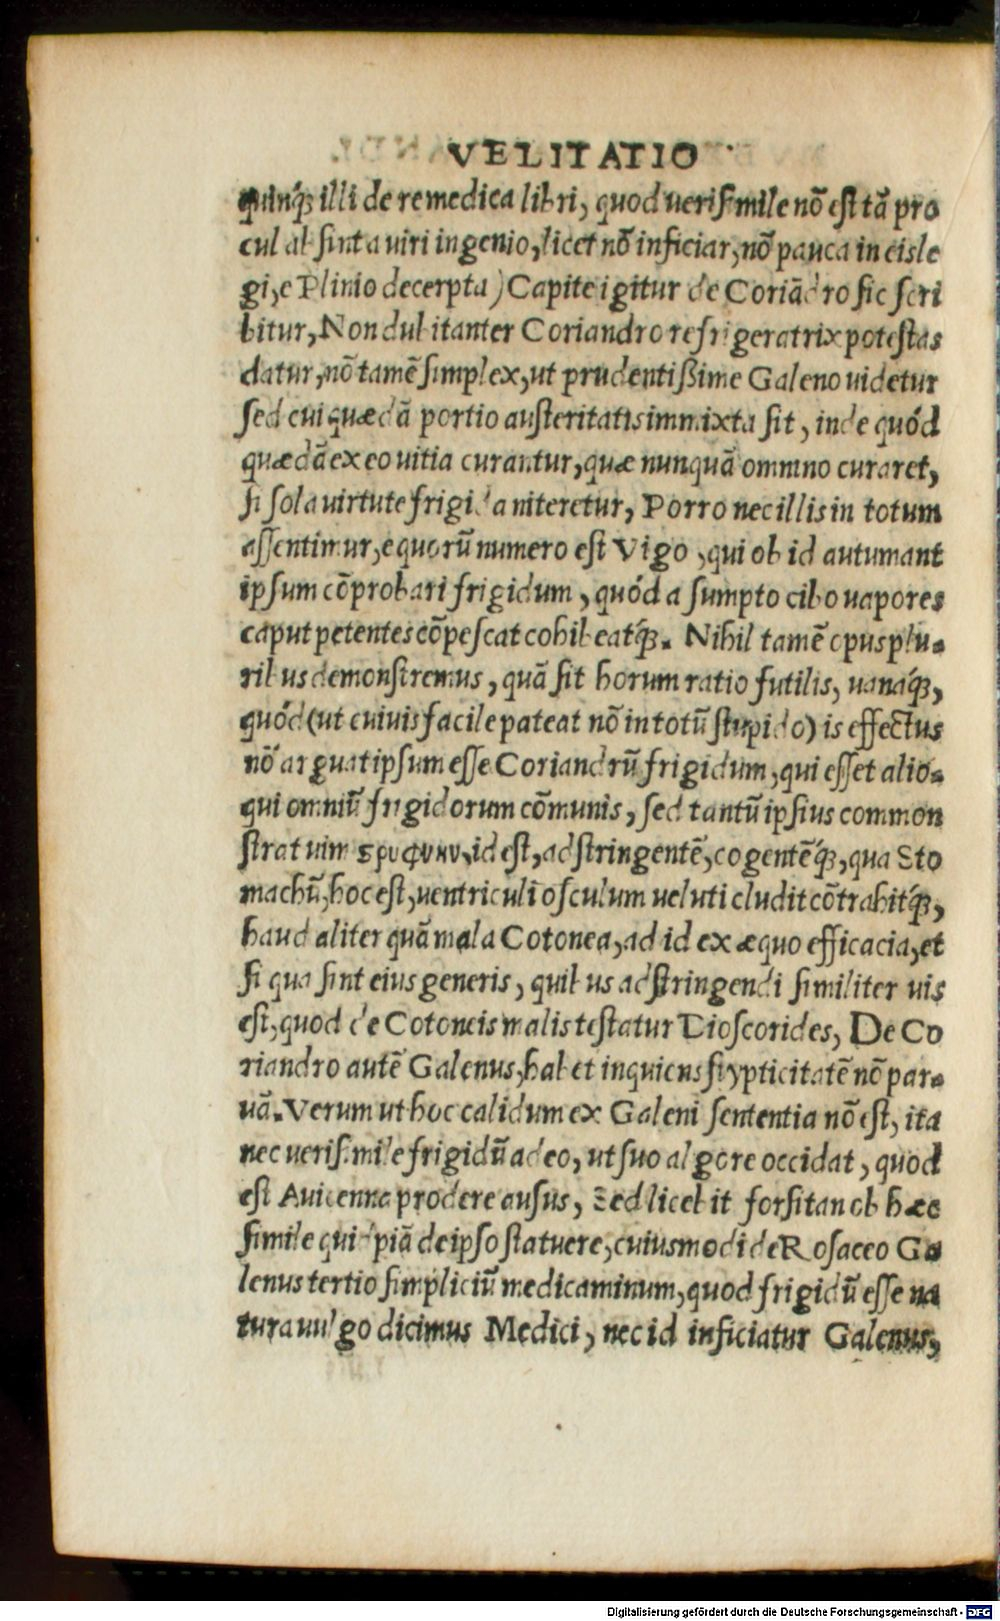 VELITATIO
quinq́; illi de re medica libri, quod uerisimile nõ est tã pro
cul absint a uiri ingenio, licet nõ inficiar, nõ pauca in eis le
gi, e Plinio decerpta) Capite igitur de Coriãdro sic scri
bitur, Non dubitanter Coriandro refrigeratrix potestas
datur, nõ tamẽ simplex, ut prudentißime Galeno uidetur
sed cui quædã portio austeritatis immixta sit, inde quód
quædã ex eo uitia curantur, quæ nunquã omnino curaret,
si sola uirtute frigida niteretur, Porro nec illis in totum
assentimur, e quorũ numero est Vigo, qui ob id autumant
ipsum cõprobari frigidum, quód a sumpto cibo uapores
caput petentes cõpescat cohibeatq́;. Nihil tamẽ opus plu-
ribus demonstremus, quã sit horum ratio futilis, uanaq́;,
quód (ut cuiuis facile pateat nõ in totũ stupido) is effectus
nõ arguat ipsum esse Coriandrũ frigidum, qui esset alio-
qui omniũ frigidorum cõmunis, sed tantũ ipsius common
strat uim ςρυφνὴν, id est, adstringentẽ, cogentẽq́;, qua Sto
machũ, hoc est, uentriculi osculum ueluti cludit cõtrahitq́;,
haud aliter quã mala Cotonea, ad id ex æquo efficacia, et
si qua sint eius generis, quibus adstringendi similiter uis
est, quod de Cotoneis malis testatur Dioscorides, De Co
riandro autẽ Galenus, habet inquiens stypticitatẽ nõ par-
uã. Verum ut hoc calidum ex Galeni sententia nõ est, ita
nec uerisimile frigidũ adeo, ut suo algore occidat, quod
est Auicenna prodere ausus, Sed licebit forsitan ob hæc
simile quidpiã de ipso statuere, cuiusmodi de Rosaceo Ga
lenus tertio simpliciũ medicaminum, quod frigidũ esse na
tura uulgo dicimus Medici, nec id inficiatur Galenus,
Digitalisierung gefördert durch die Deutsche Forschungsgemeinschaft - DFG